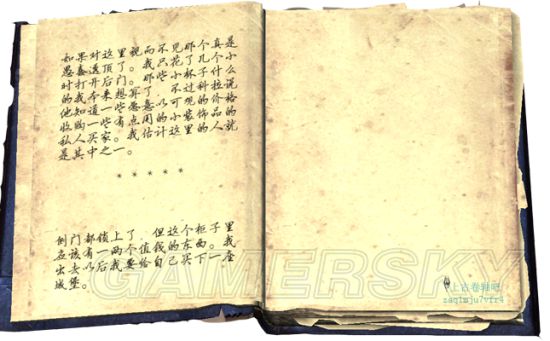 如果对这里视而不见那个真是
愚蠢透顶了。我只花了几个小
时打开后门。那些小杯子什么
的我本来想算了，不过科拉说
他知道一些愿意以可观的价格
收购一些有点用的小装饰品的
私人买家。我估计这里的人就
是其中之一。
* * * * *
侧门都锁上了，但这个柜子里
应该有一两个值钱的东西。我
出去以后我要给自己买下一座
城堡。
GAMERSKY
上古卷轴吧
zaq1mju7vfr4